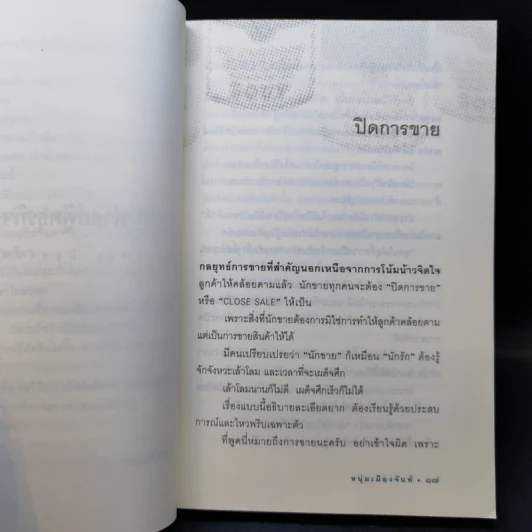 ปิดการขาย
กลยุทธ์การขายที่สำคัญนอกเหนือจากการโน้มน้าวจิตใจ
ลูกค้าให้คล้อยตามแล้ว นักขายทุกคนจะต้อง “ปิดการขาย”
หรือ “CLOSE SALE” ให้เป็น
เพราะสิ่งที่นักขายต้องการมิใช่การทำให้ลูกค้าคล้อยตาม
แต่เป็นการขายสินค้าให้ได้
มีคนเปรียบเปรยว่า “นักขาย” ก็เหมือน “นักรัก” ต้องรู้
จักจังหวะเล้าโลม และเวลาที่จะเผด็จศึก
เล้าโลมนานก็ไม่ดี เผด็จศึกเร็วก็ไม่ได้
เรื่องแบบนี้อธิบายละเอียดยาก ต้องเรียนรู้ด้วยประสบ
การณ์และไหวพริบเฉพาะตัว
ที่พูดนี่หมายถึงการขายนะครับ อย่าเข้าใจผิด เพราะ
หนุ่มเมืองจันท์ • ๑๗